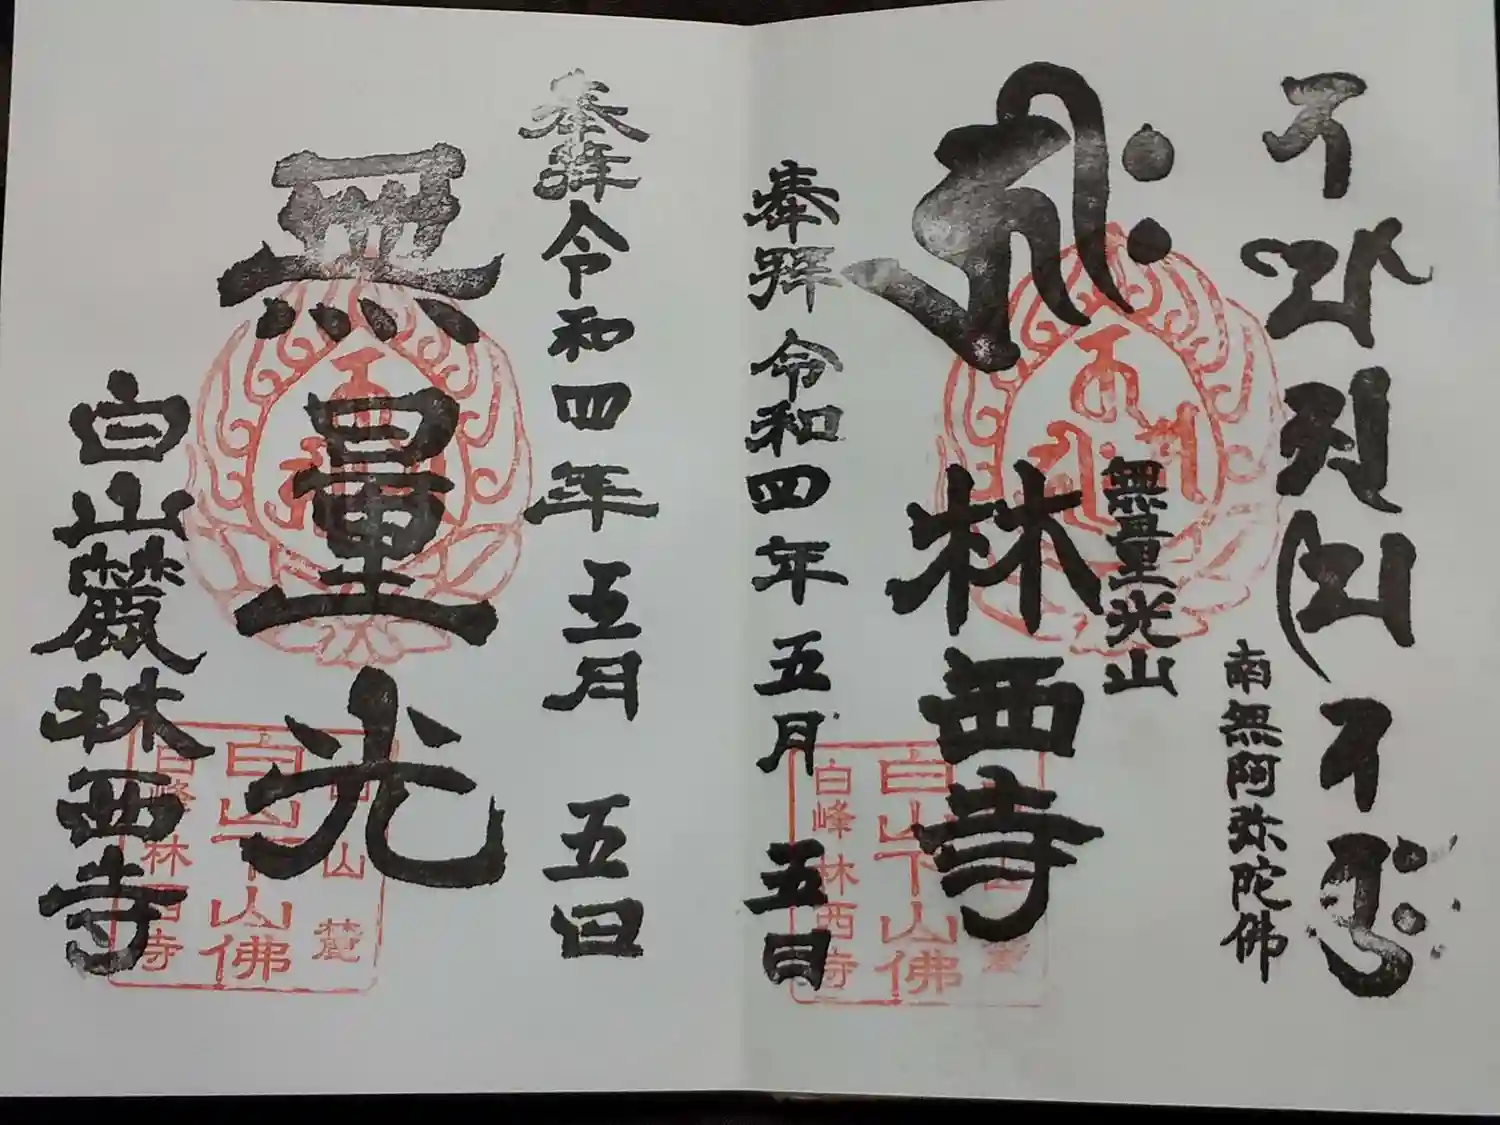 南無阿弥陀佛
無量光山
林西寺
奉拝 令和四年 五月 五日
白山麓
白山下山佛
白峰林西寺
奉拝 令和四年 五月 五日
無量光
白山麓林西寺
白山麓
白山下山佛
白峰林西寺